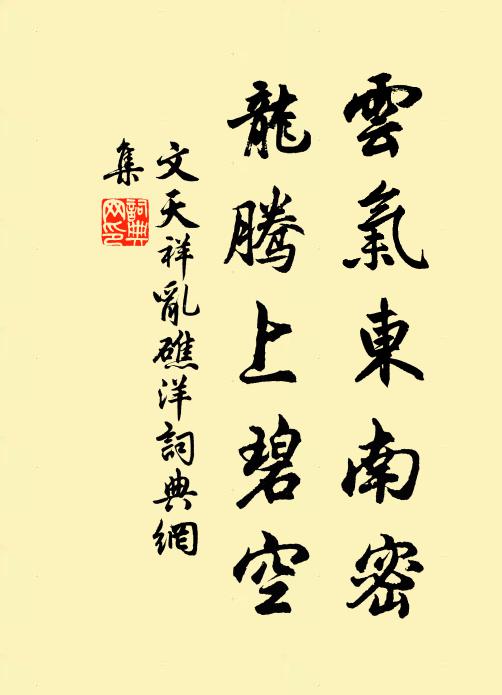 雲氣東南密
龍騰上碧空
文天祥亂礁洋詞典網
集
詞典
网印